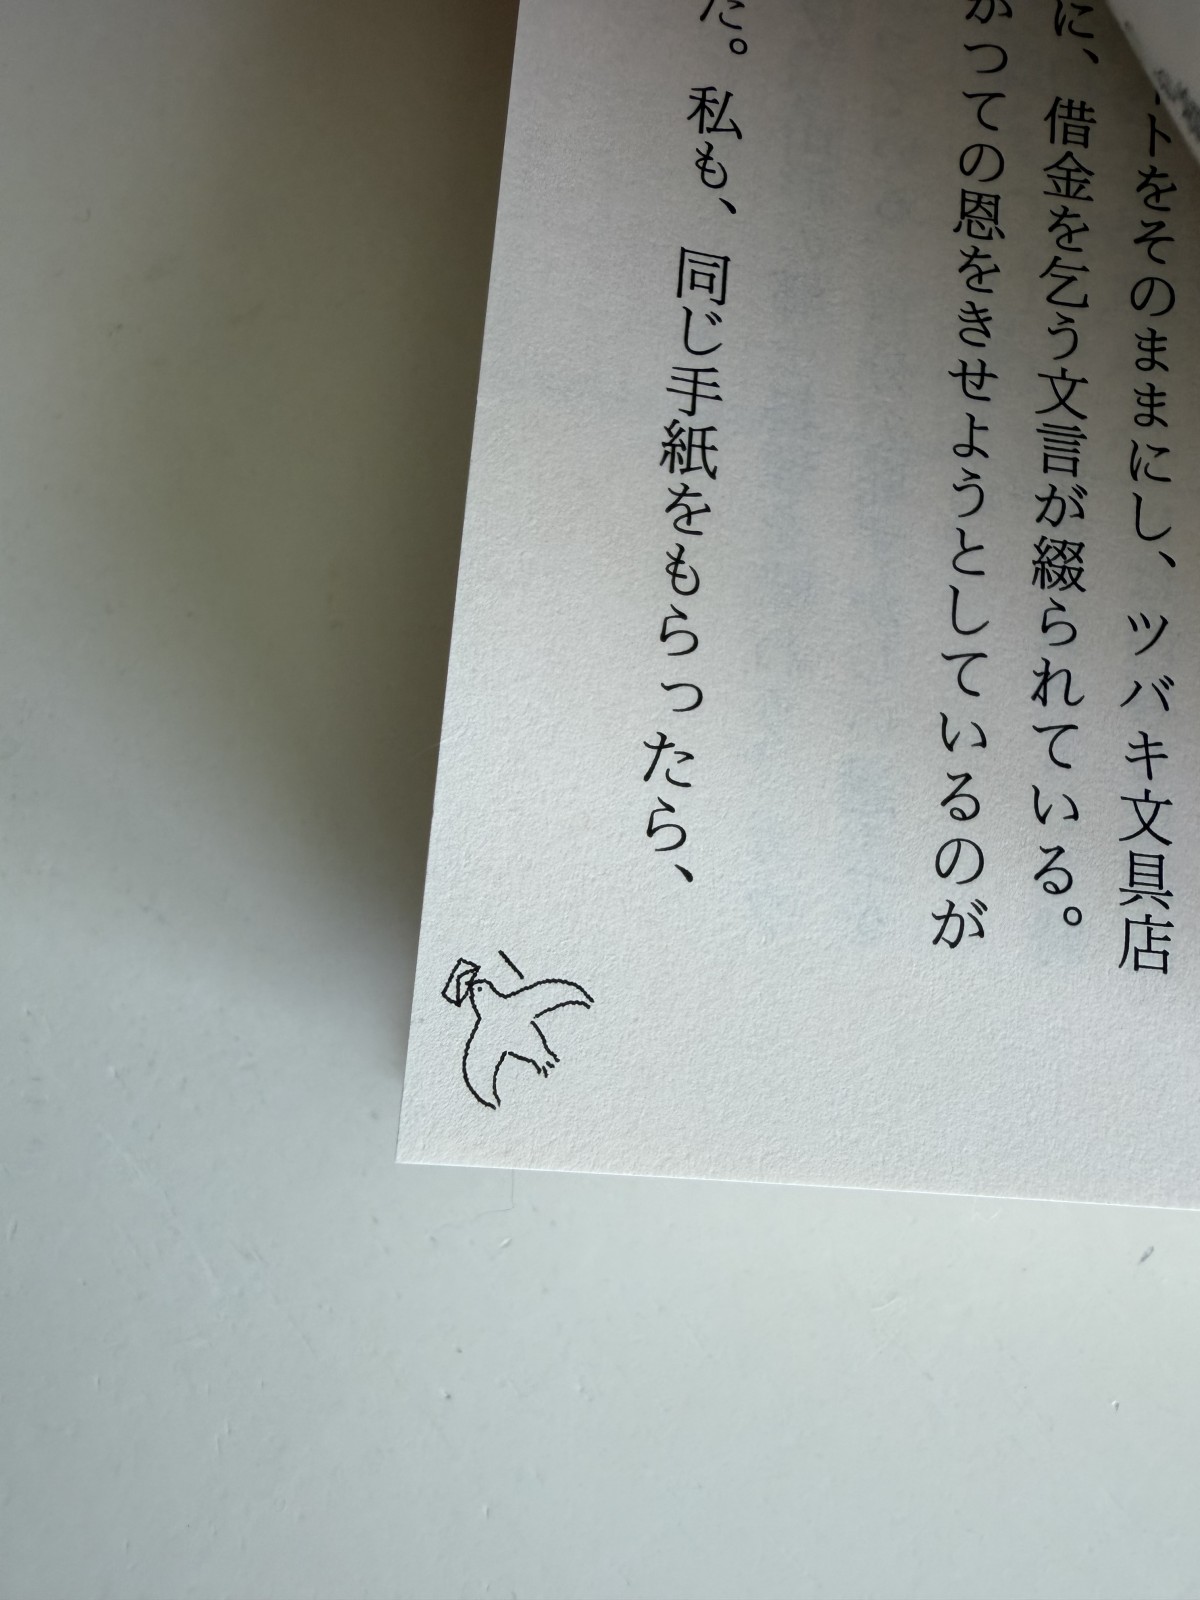 トをそのままにし、ツバキ文具店
に、借金を乞う文言が綴られている。
かつての恩をきせようとしているのが
た。私も、同じ手紙をもらったら、